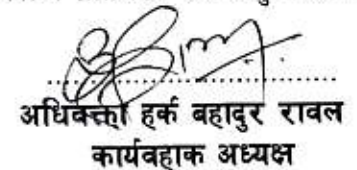 अधिवक्ता हर्क बहादुर रावल
कार्यवहाक अध्यक्ष